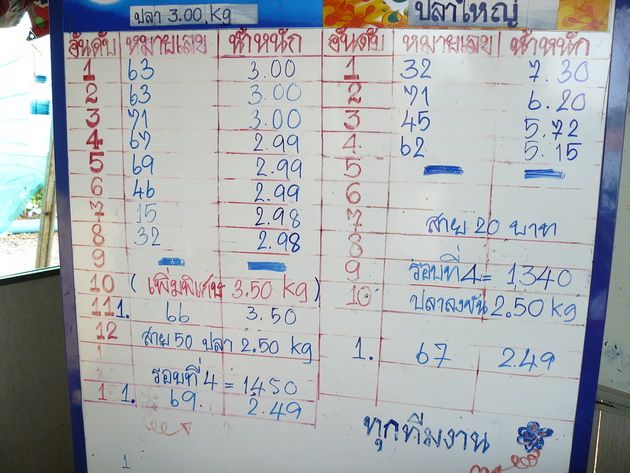 ปลา 3.00 kg
อันดับ หมายเลข น้ำหนัก
1 63 3.00
2 63 3.00
3 71 3.00
4 67 2.99
5 69 2.99
6 46 2.99
7 15 2.98
8 32 2.98
9
10 ( เพิ่มพิเศษ 3.50 kg )
11 1. 66 3.50
12 สาย 50 ปลา 2.50 kg
รอบที่ 4 = 1450
1. 69. 2.49
1
ปลาใหญ่
อันดับ หมายเลข น้ำหนัก
1 32 7.30
2 71 6.20
3 45 5.72
4 62 5.15
5
6
7 สาย 20 บาท
8
9 รอบที่ 4 = 1340
10 ปลาลงขัน 2.50 kg
1. 67 2.49
ทุกทีมงาน